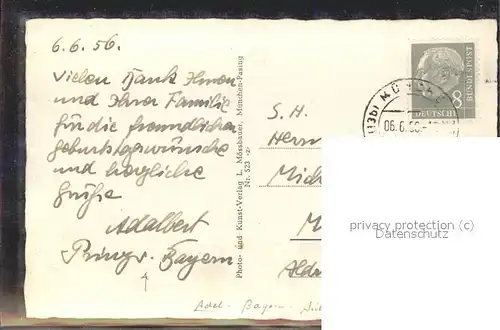 6.6.56.
Vielen Dank Ihnen
und Ihrer Familie
für die freundlichen
Geburtstagswünsche
und herzliche
Grüße
Adalbert
Prinz v. Bayern
Photo- und Kunst-Verlag L. Mössbauer, München-Pasing
Nr. 523
S. H.
Herrn
Mich
M
DEUTSCHE
BUNDESPOST
8
06.6.56
privacy protection (c)
Datenschutz
Adel - Bayern